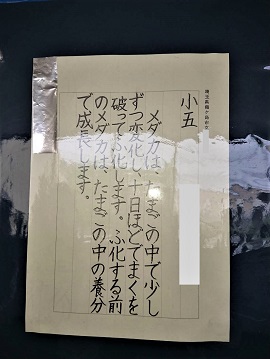 小五
メダカは、たまごの中で少し
ずつ変化し、十日ほどでまくを
破ってふ化します。ふ化する前
のメダカは、たまごの中の養分
で成長します。